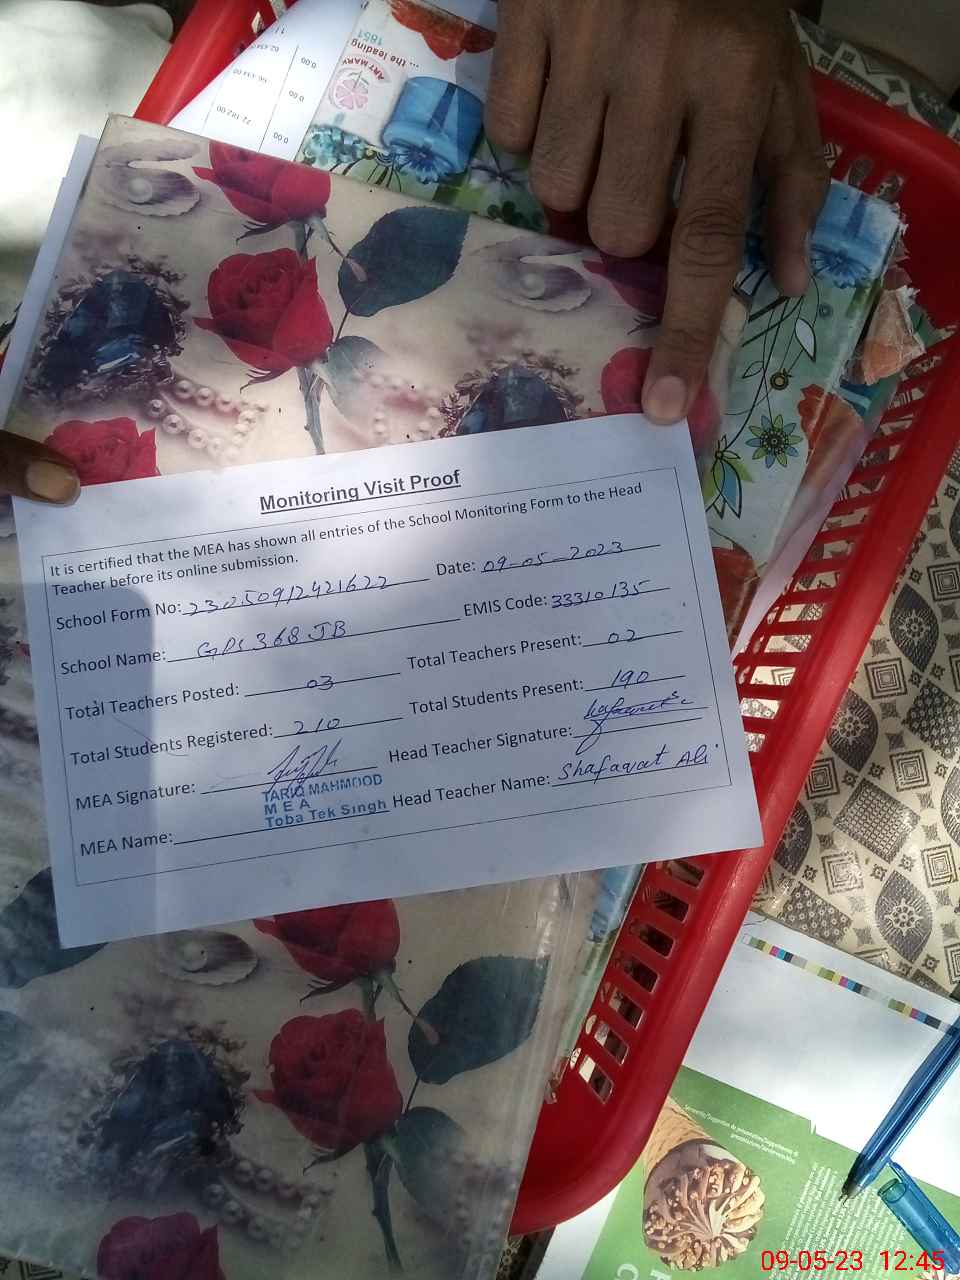 ... the leading
1851
ART MARK
0.00
0.00
0.00
Monitoring Visit Proof
It is certified that the MEA has shown all entries of the School Monitoring Form to the Head
Teacher before its online submission.
School Form No: 23050912421622 Date: 09-05-2023
School Name: GPS 368 JB EMIS Code: 33310135
Total Teachers Posted: 03 Total Teachers Present: 02
Total Students Registered: 210 Total Students Present: 190
MEA Signature: Head Teacher Signature:
TARIQ MAHMOOD
M E A
Toba Tek Singh
MEA Name: Head Teacher Name: Shafaqat Ali
09-05-23 12:45